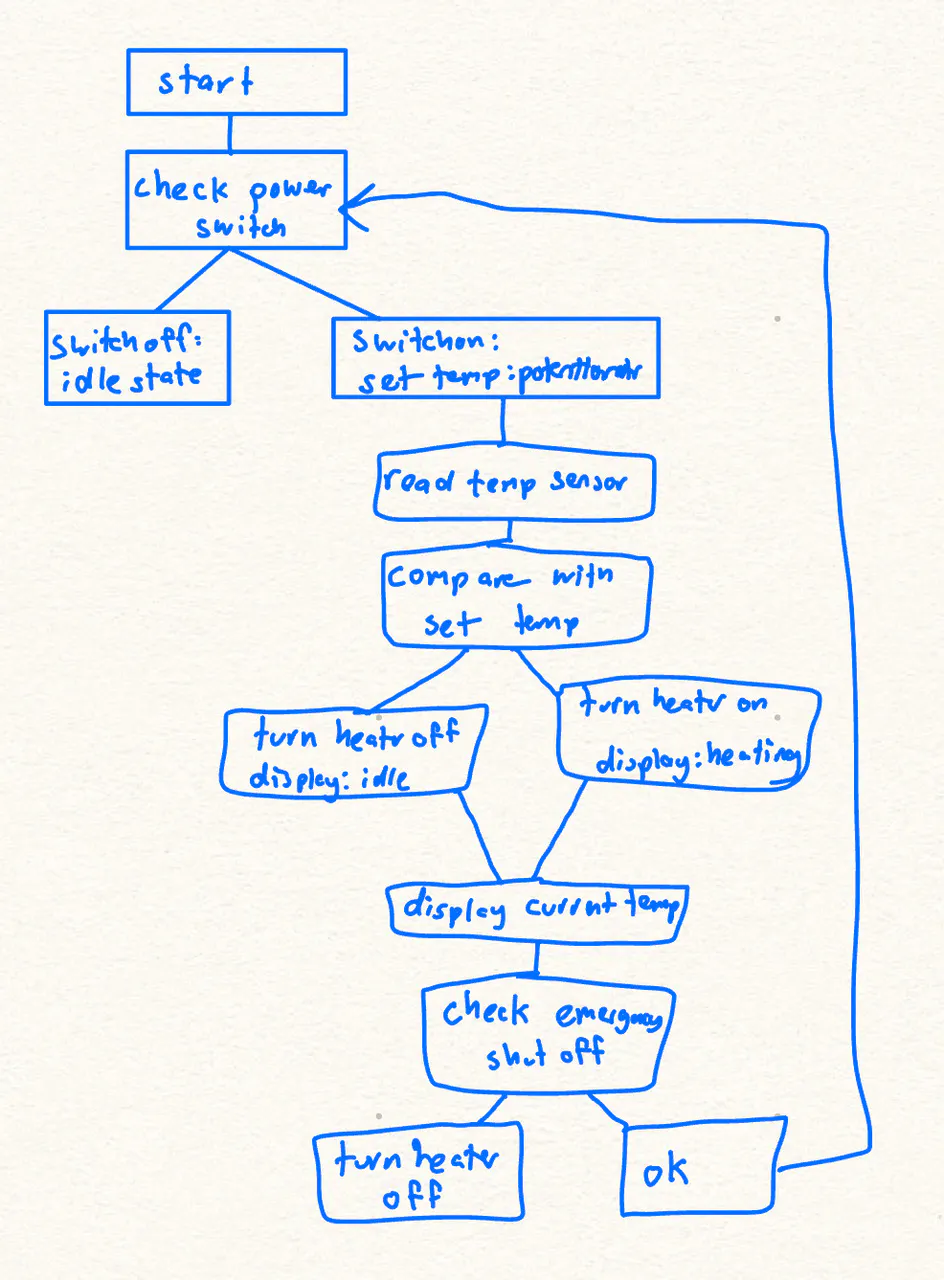 start
check power
switch
switch off:
idle state
switch on:
set temp:
read temp sensor
compare with
set temp
turn heatr off
display: idle
turn heatr on
display: heating
display currnt temp
check emergency
shut off
turn heater
off
ok